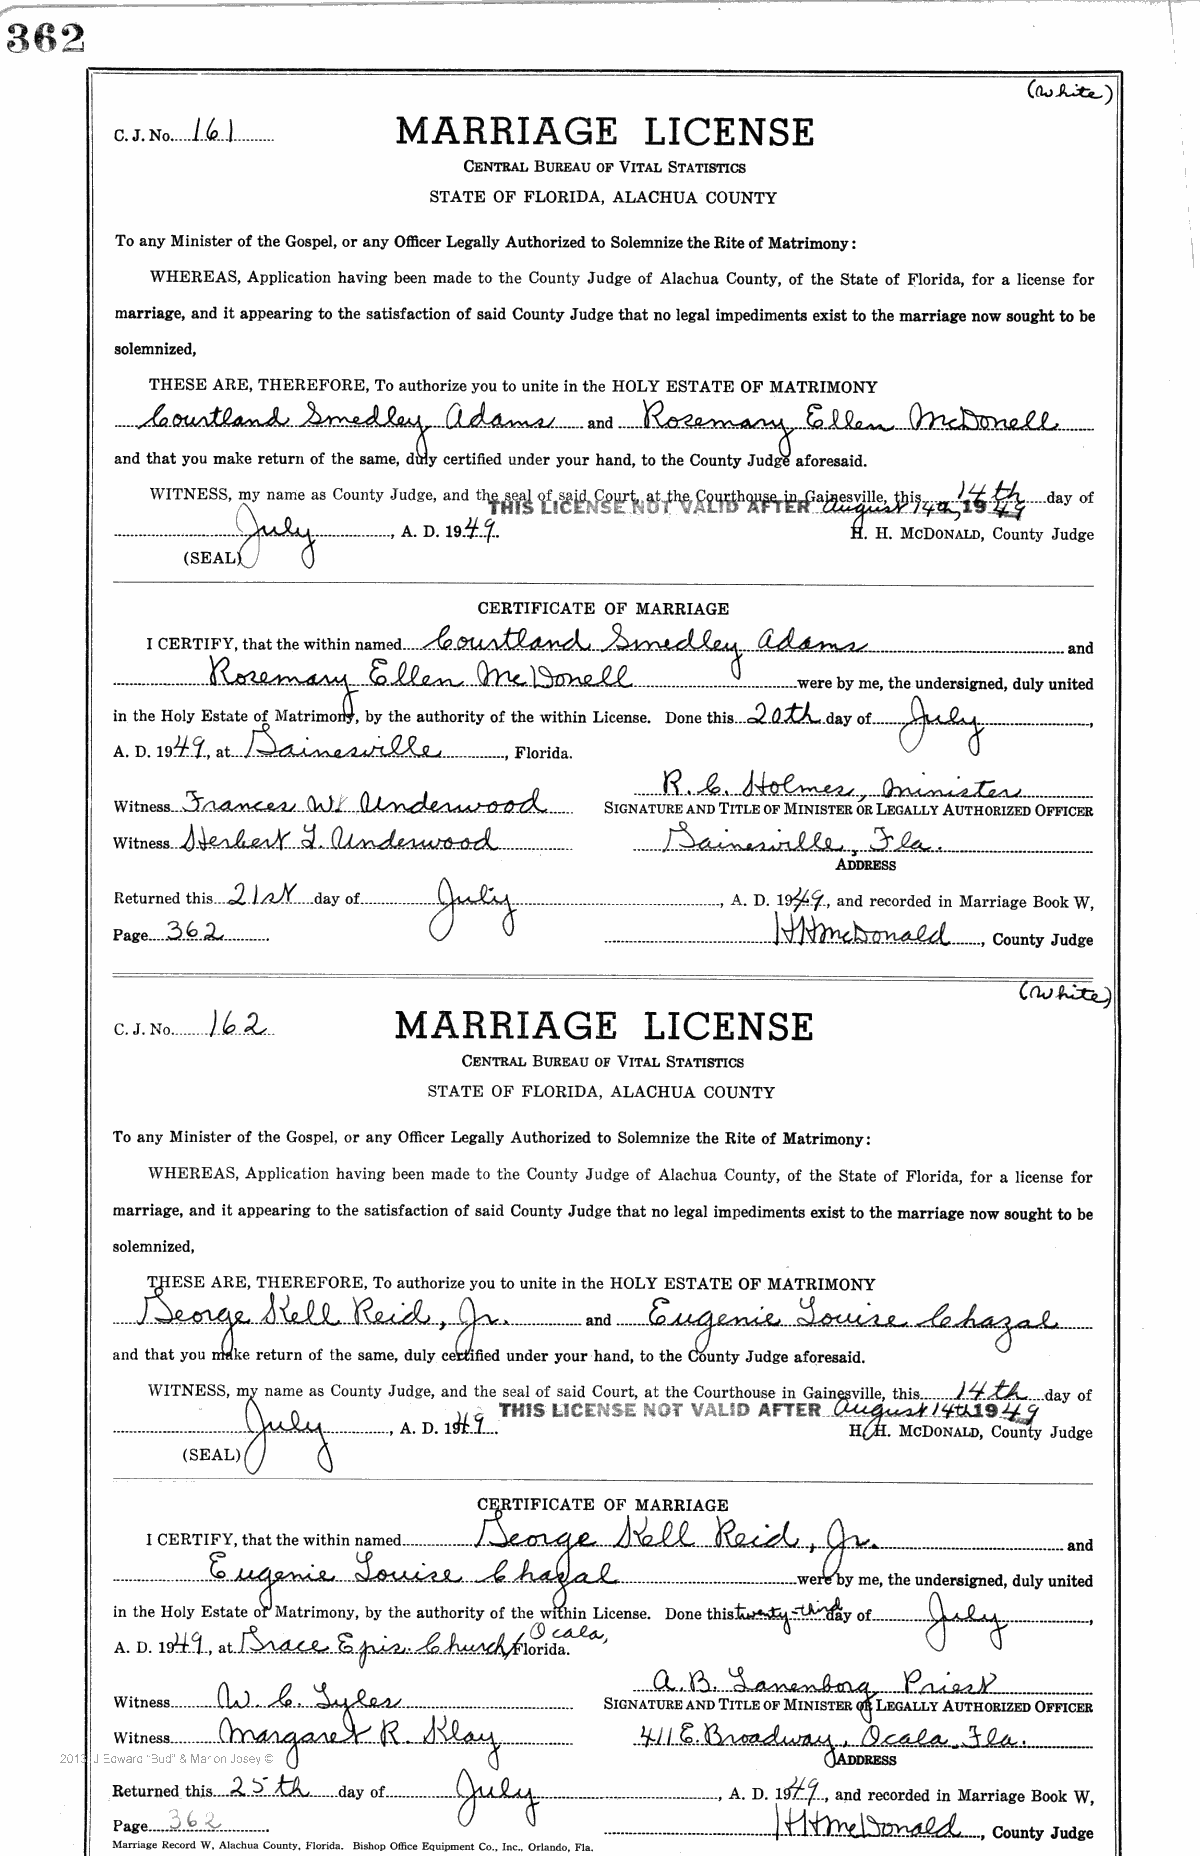 362
(White)
C. J. No. 161
MARRIAGE LICENSE
CENTRAL BUREAU OF VITAL STATISTICS
STATE OF FLORIDA, ALACHUA COUNTY
To any Minister of the Gospel, or any Officer Legally Authorized to Solemnize the Rite of Matrimony:
WHEREAS, Application having been made to the County Judge of Alachua County, of the State of Florida, for a license for
marriage, and it appearing to the satisfaction of said County Judge that no legal impediments exist to the marriage now sought to be
solemnized,
THESE ARE, THEREFORE, To authorize you to unite in the HOLY ESTATE OF MATRIMONY
Courtland Smedley Adams and Rosemary Ellen McDonell
and that you make return of the same, duly certified under your hand, to the County Judge aforesaid.
WITNESS, my name as County Judge, and the seal of said Court, at the Courthouse in Gainesville, this 14th day of
THIS LICENSE NOT VALID AFTER August 14th, 1949
July, A. D. 1949. H. H. MCDONALD, County Judge
(SEAL)
CERTIFICATE OF MARRIAGE
I CERTIFY, that the within named Courtland Smedley Adams and
Rosemary Ellen McDonell were by me, the undersigned, duly united
in the Holy Estate of Matrimony, by the authority of the within License. Done this 20th day of July,
A. D. 1949, at Gainesville, Florida.
R. C. Holmes, Minister
Witness Frances W. Underwood SIGNATURE AND TITLE OF MINISTER OR LEGALLY AUTHORIZED OFFICER
Witness Herbert L. Underwood Gainesville, Fla.
ADDRESS
Returned this 21st day of July, A. D. 1949, and recorded in Marriage Book W,
Page 362 HHMcDonald, County Judge
(White)
C. J. No. 162
MARRIAGE LICENSE
CENTRAL BUREAU OF VITAL STATISTICS
STATE OF FLORIDA, ALACHUA COUNTY
To any Minister of the Gospel, or any Officer Legally Authorized to Solemnize the Rite of Matrimony:
WHEREAS, Application having been made to the County Judge of Alachua County, of the State of Florida, for a license for
marriage, and it appearing to the satisfaction of said County Judge that no legal impediments exist to the marriage now sought to be
solemnized,
THESE ARE, THEREFORE, To authorize you to unite in the HOLY ESTATE OF MATRIMONY
George Kell Reid, Jr. and Eugenie Louise Chazal
and that you make return of the same, duly certified under your hand, to the County Judge aforesaid.
WITNESS, my name as County Judge, and the seal of said Court, at the Courthouse in Gainesville, this 14th day of
THIS LICENSE NOT VALID AFTER August 14th 1949
July, A. D. 1949. H. H. MCDONALD, County Judge
(SEAL)
CERTIFICATE OF MARRIAGE
I CERTIFY, that the within named George Kell Reid, Jr. and
Eugenie Louise Chazal were by me, the undersigned, duly united
in the Holy Estate of Matrimony, by the authority of the within License. Done this twenty-third day of July,
A. D. 1949, at Grace Epis. Church, Ocala, Florida.
A. B. Lanenborg Priest
Witness W. C. Lyles SIGNATURE AND TITLE OF MINISTER OR LEGALLY AUTHORIZED OFFICER
Witness Margaret R. Klay 411 E. Broadway, Ocala, Fla.
2013 J Edward "Bud" & Marion Josey © ADDRESS
Returned this 25th day of July, A. D. 1949, and recorded in Marriage Book W,
Page 362 HHMcDonald, County Judge
Marriage Record W, Alachua County, Florida. Bishop Office Equipment Co., Inc., Orlando, Fla.